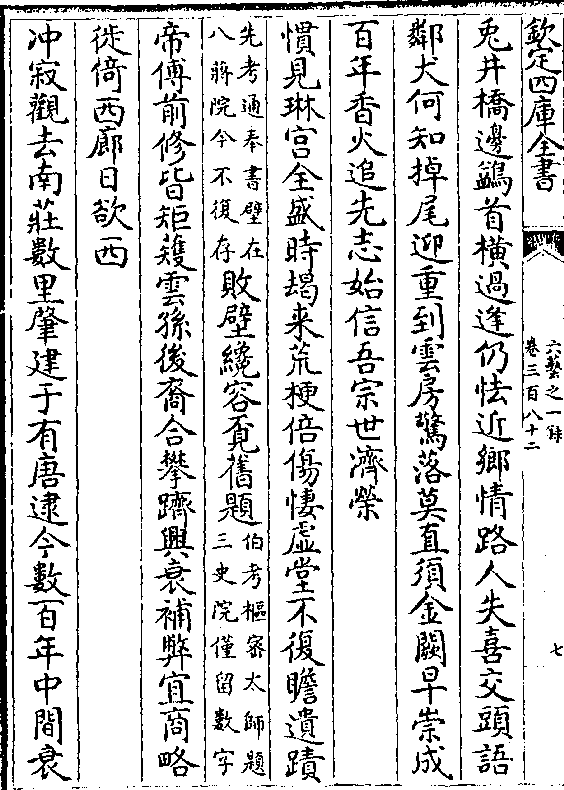 欽定四庫全書
六藝之一録
卷三百八十二
七
兎井橋邊鷁首横過逢仍怯近鄉情路人失喜交頭語
鄰犬何知掉尾迎重到雲房驚落莫直須金闕早崇成
百年香火追先志始信吾宗世濟榮
慣見琳宫全盛時朅来荒梗倍傷悽虚堂不復瞻遺蹟
先考通奉書壁在
八蔣院今不復存
敗壁纔容覔舊題
伯考樞宻太師題
三史院僅留數字
帝傅前修皆矩矱雲孫後裔合攀躋興衰補弊宜商略
徙倚西廊日欲西
冲寂觀去南莊數里肇建于有唐逮今數百年中間衰